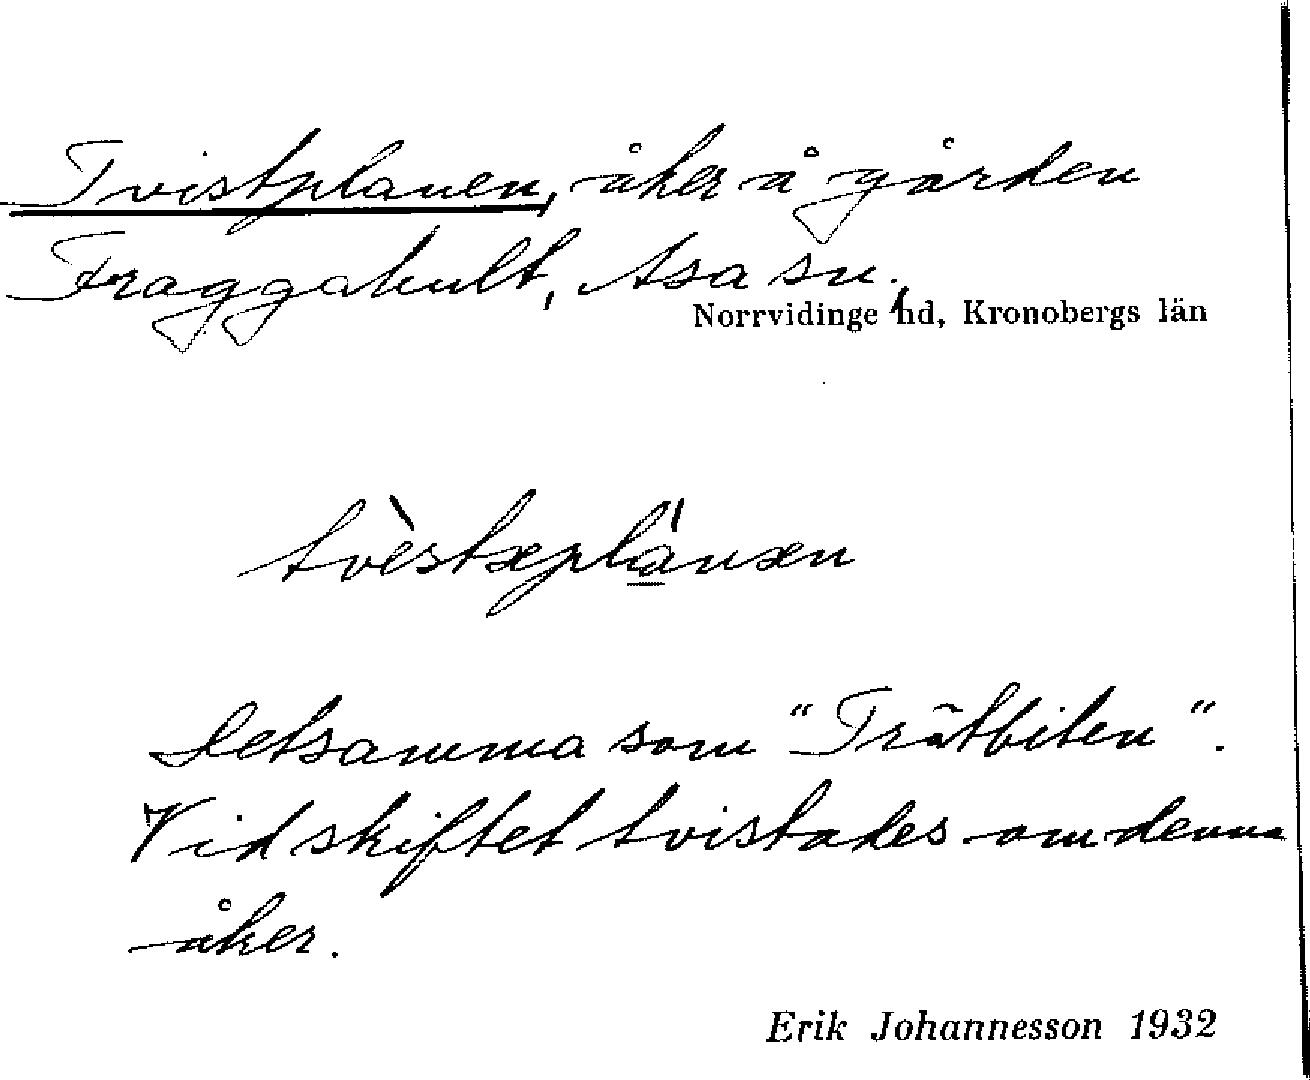 Tvistplanen, åker å gården
Fraggahult, Asa sn.,
Norrvidinge hd, Kronobergs län
tvèstæplánæn
Detsamma som "Trätbiten".
Vid skiftet tvistades om denna
åker.
Erik Johannesson 1932